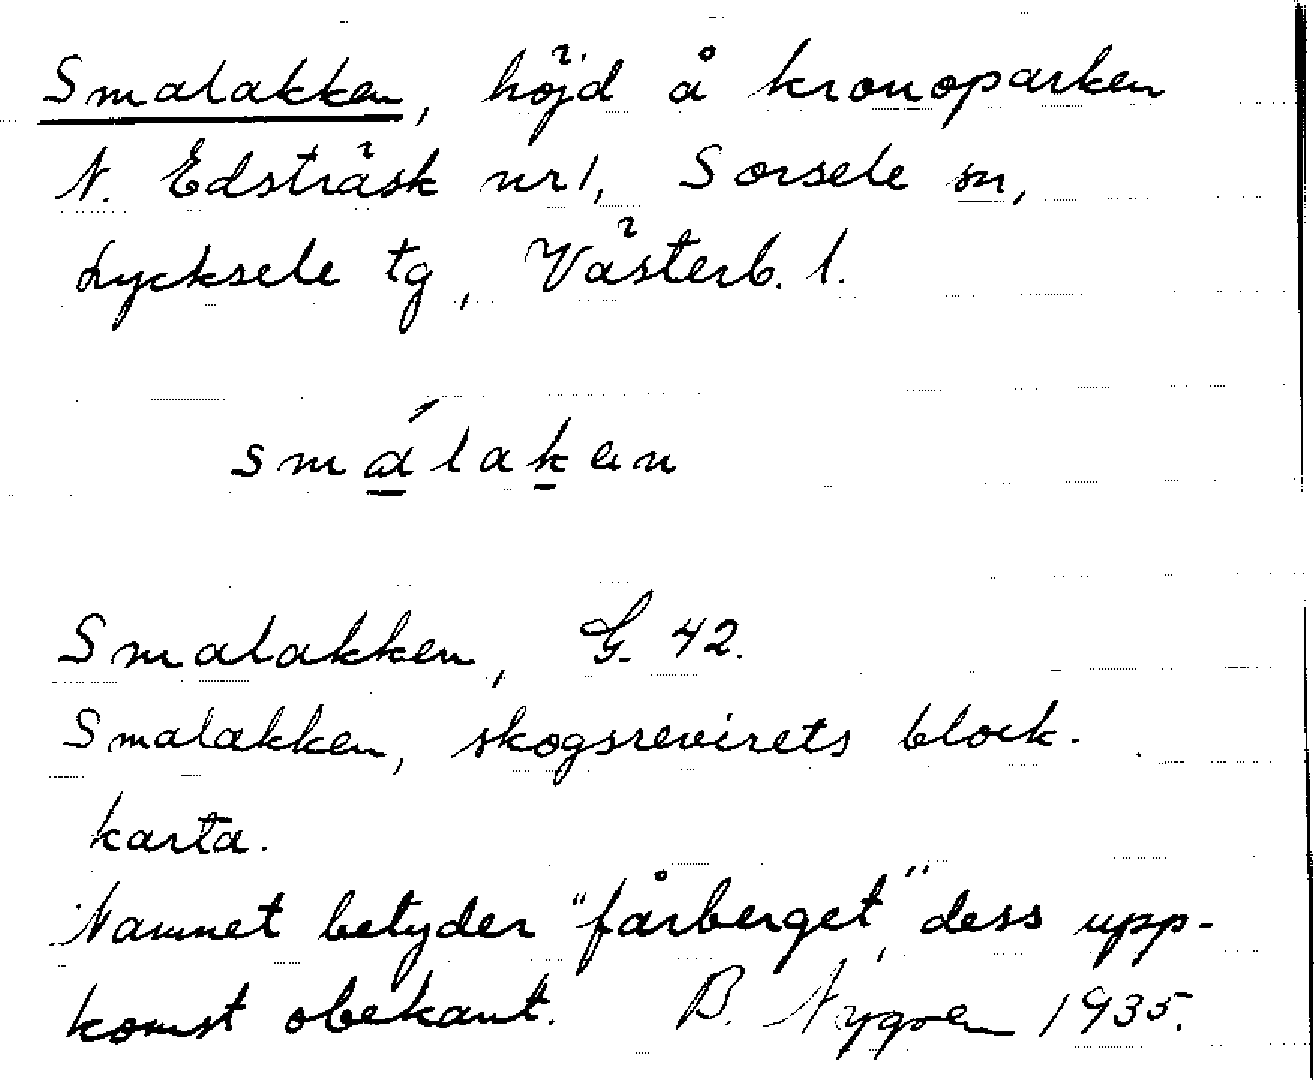 Smalakken, höjd å kronoparken
N. Edsträsk nr 1, Sorsele sn,
Lycksele tg, Västerb. l.
smálaken
Smalakken, G. 42.
Smalakken, skogsrevirets block-
karta.
Namnet betyder "fårberget", dess upp-
komst obekant. B. Nygren 1935.